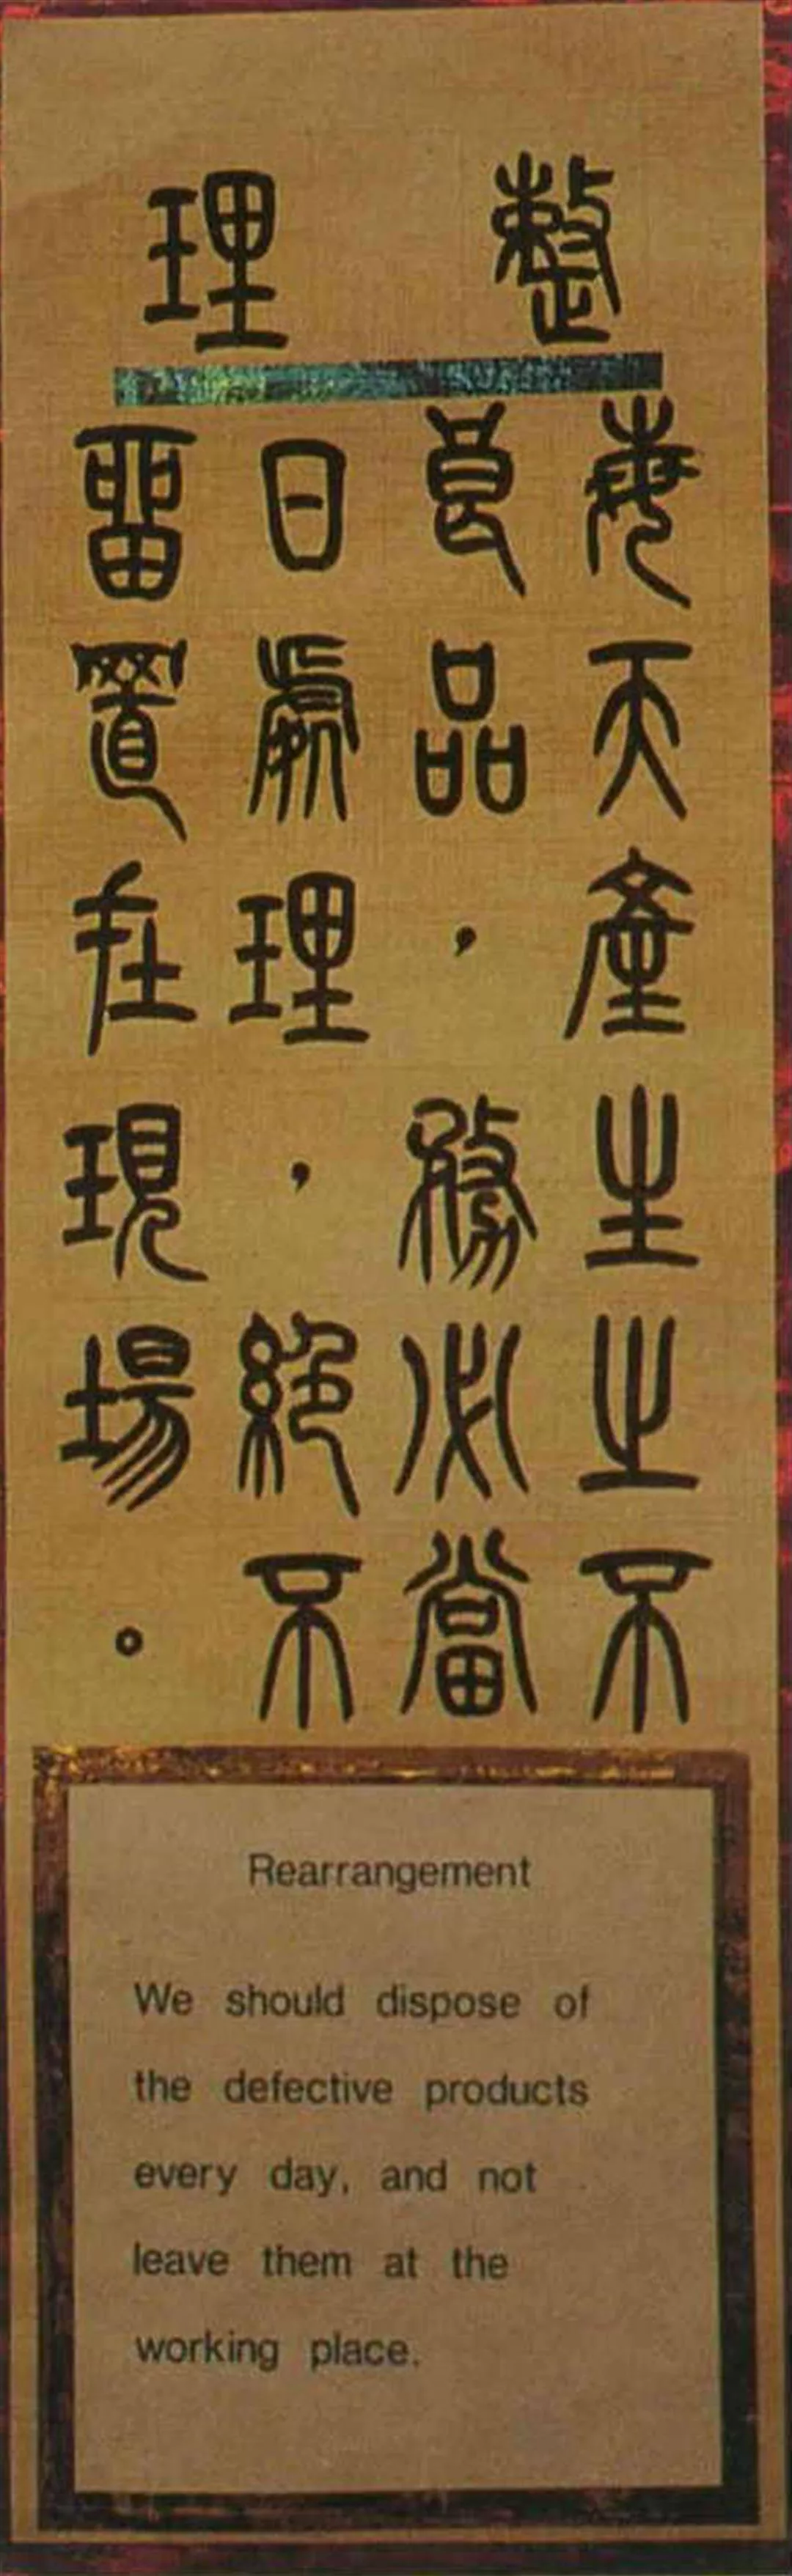 整理
每天產生之不
良品，務必當
日處理，絕不
留置在現場。
Rearrangement
We should dispose of
the defective products
every day, and not
leave them at the
working place.